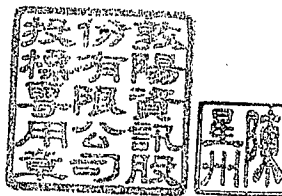 敦陽資訊股
份有限公司
投標專用章
陳
星州